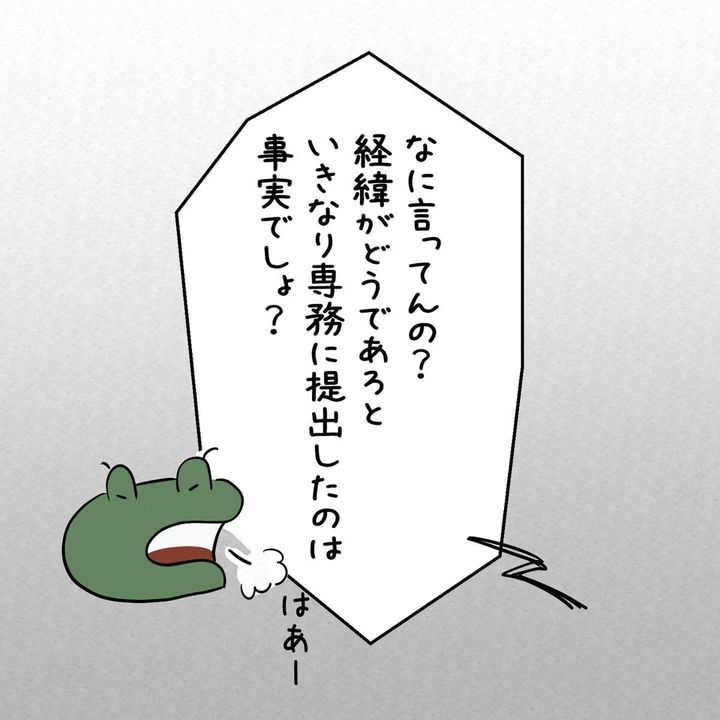 なに言ってんの？
経緯がどうであろと
いきなり専務に提出したのは
事実でしょ？
はあー